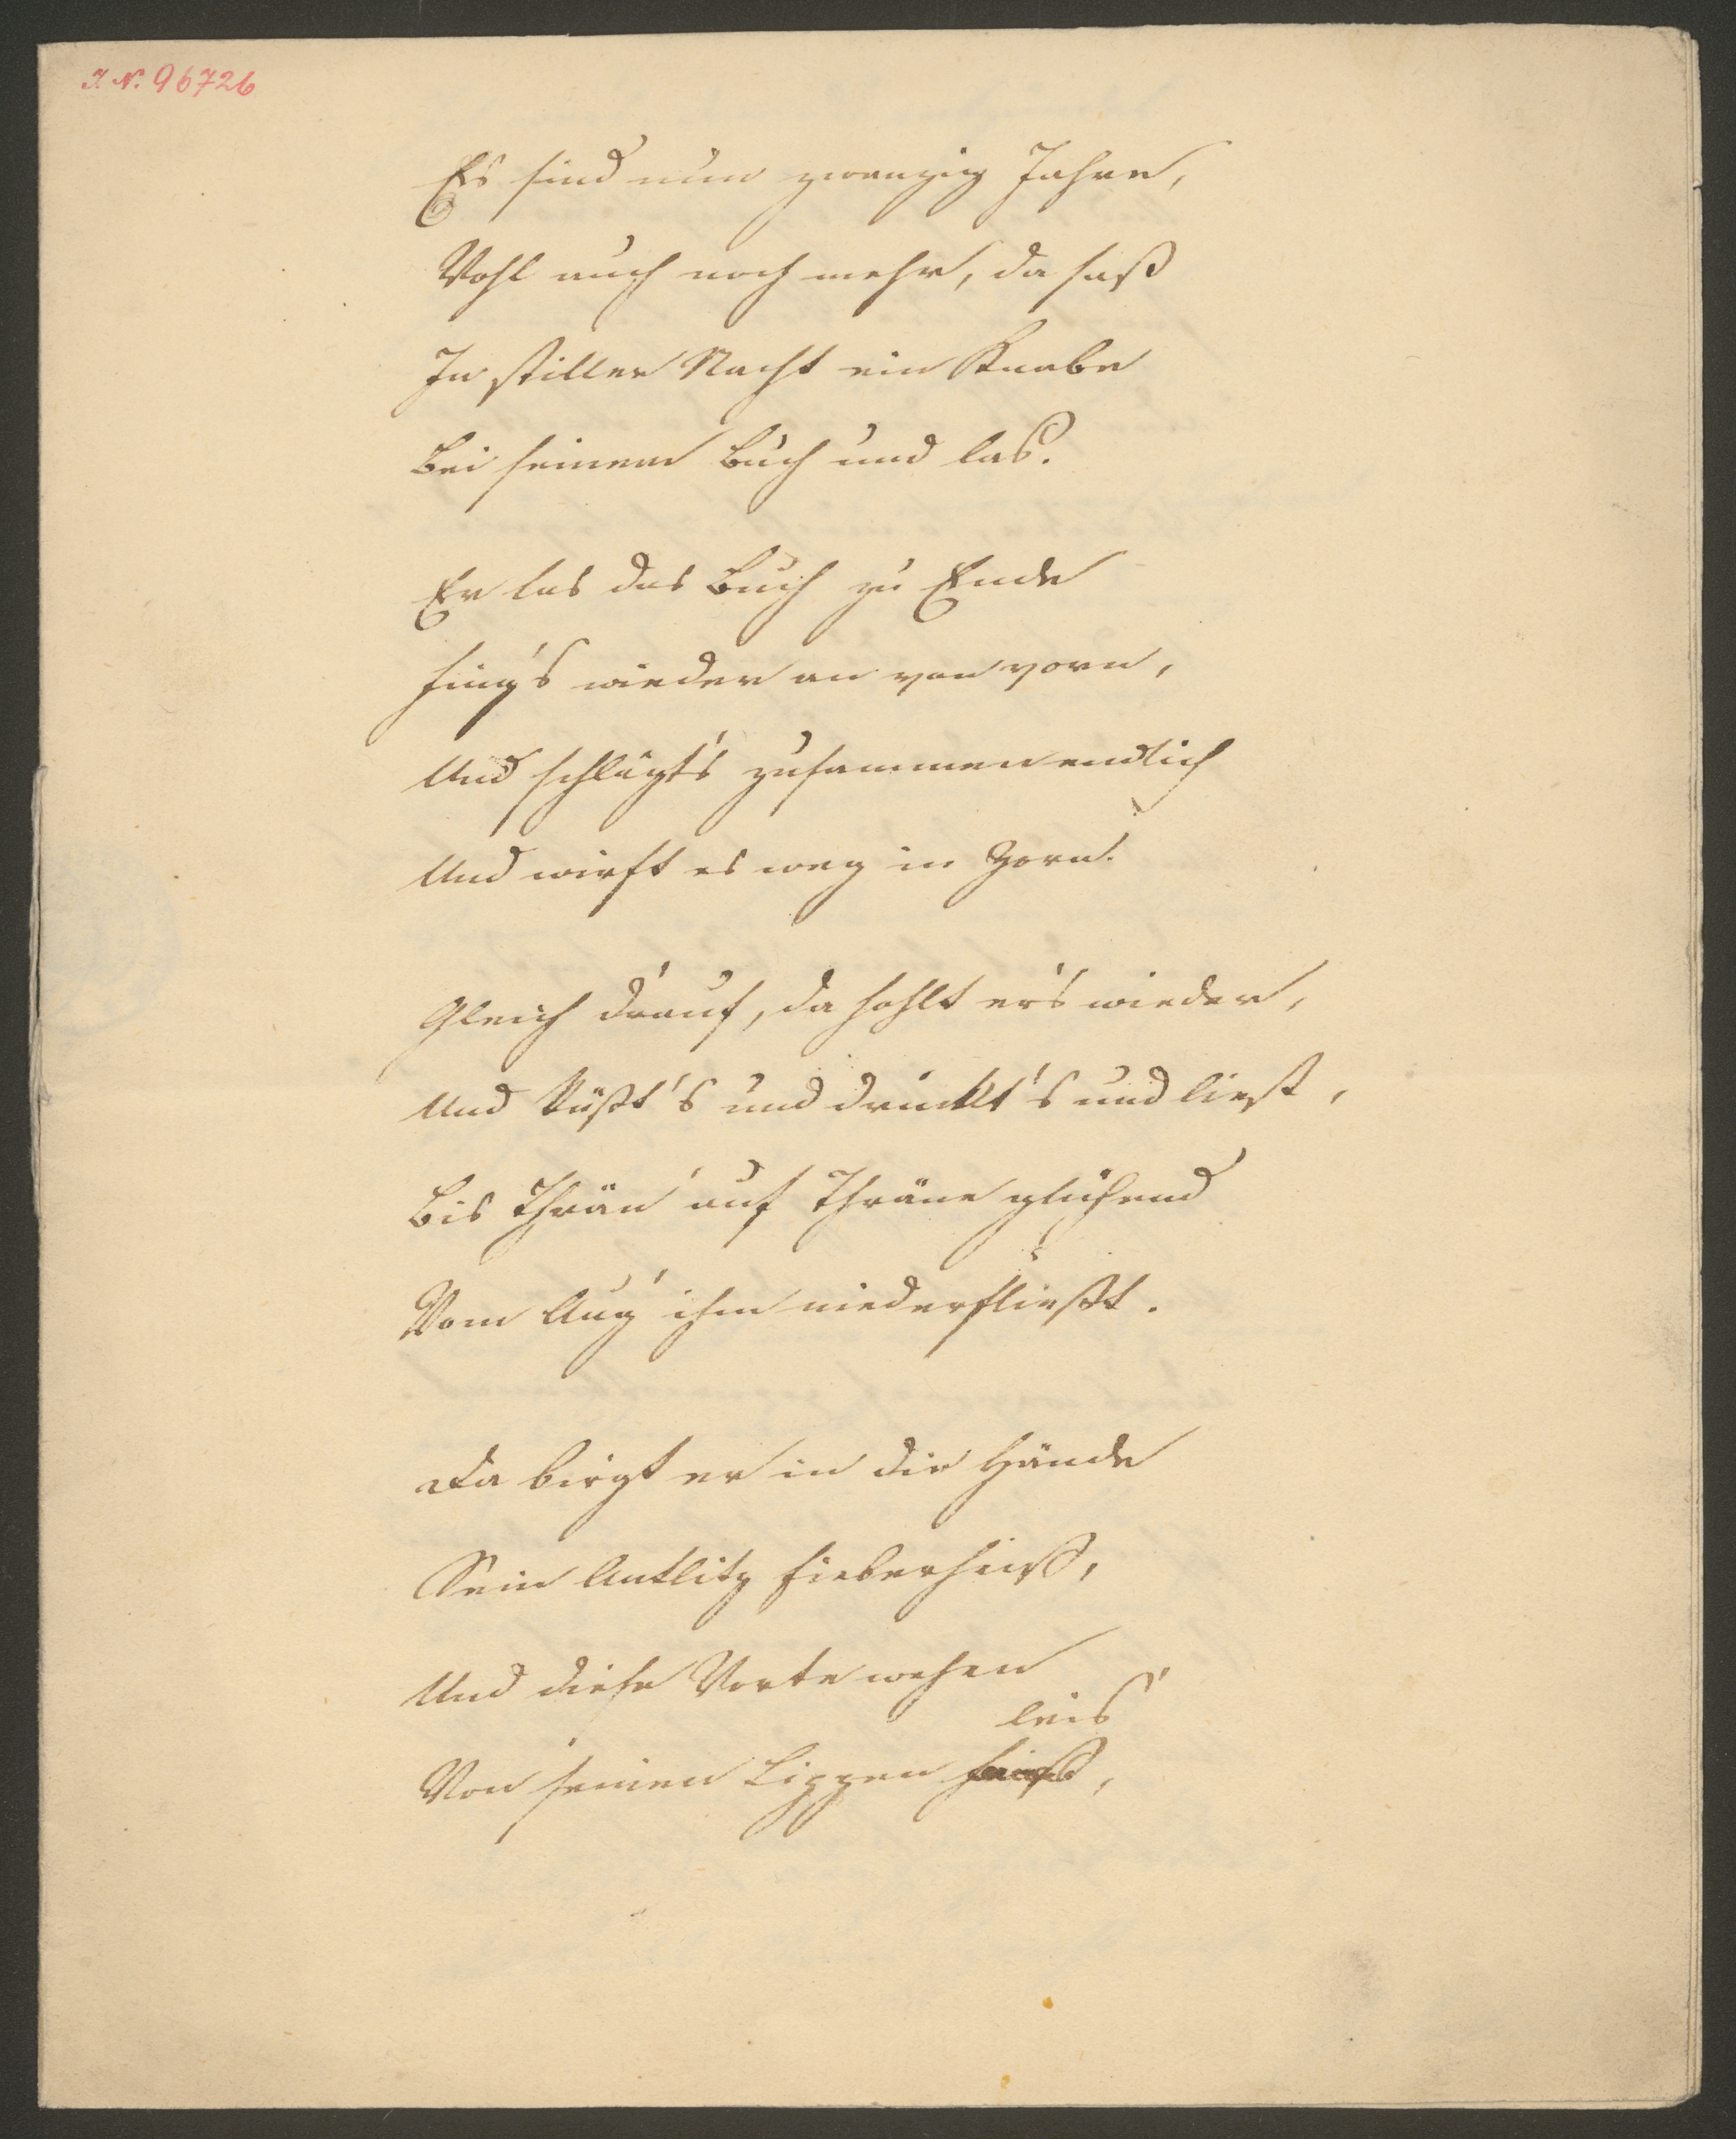 I. N. 96726
Es sind nun zwanzig Jahre,
Wohl auch noch mehr, da saß
In stiller Nacht ein Knabe
Bei seinem Buch und las.
Er las das Buch zu Ende
Fing's wieder an von vorn,
Und schlägt's zusammen endlich
Und wirft es weg in Zorn.
Gleich d'rauf, da hohlt er's wieder,
Und küßt's und drückt's und liest,
Bis Thrän' auf Thräne glühend
Vom Aug' ihm niederfließt.
Da birgt er in die Hände
Sein Antlitz fieberheiß,
Und diese Worte wehen
leis'
Von seinen Lippen heiß,